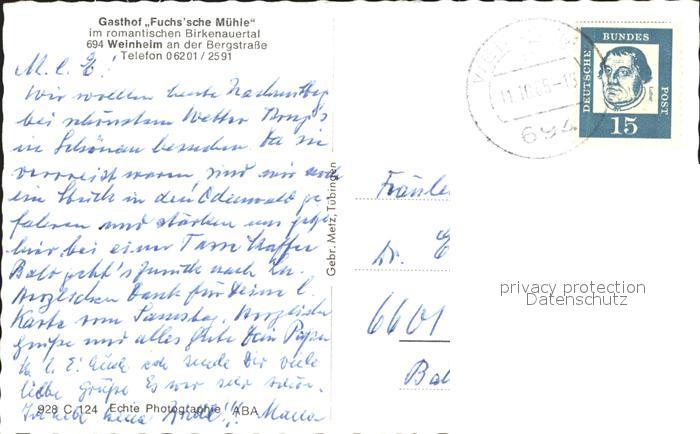 Gasthof „Fuchs'sche Mühle"
im romantischen Birkenauertal
694 Weinheim an der Bergstraße
Telefon 06201 / 2591
M. l. E.!
Wir wollten heute Nachmittag
bei schönstem Wetter
in Schönau besuchen. Da sie
verreist waren, sind wir noch
ein Stück in den Odenwald ge
fahren und stärken uns jetzt
hier bei einer Tasse Kaffee
Bald geht's zurück nach
Herzlichen Dank für Deine l.
Karte vom Samstag. Herzliche
Grüße und alles Gute Dein
M. l. E! Auch ich sende Dir viele
liebe Grüße Es war sehr schön.
Ich habe keine Mama
928 C 124 Echte Photographie ABA
Gebr. Metz, Tübingen
694
DEUTSCHE BUNDES POST
Luther
15
Fräulein
Dr. E
6601
Bal
privacy protection
Datenschutz